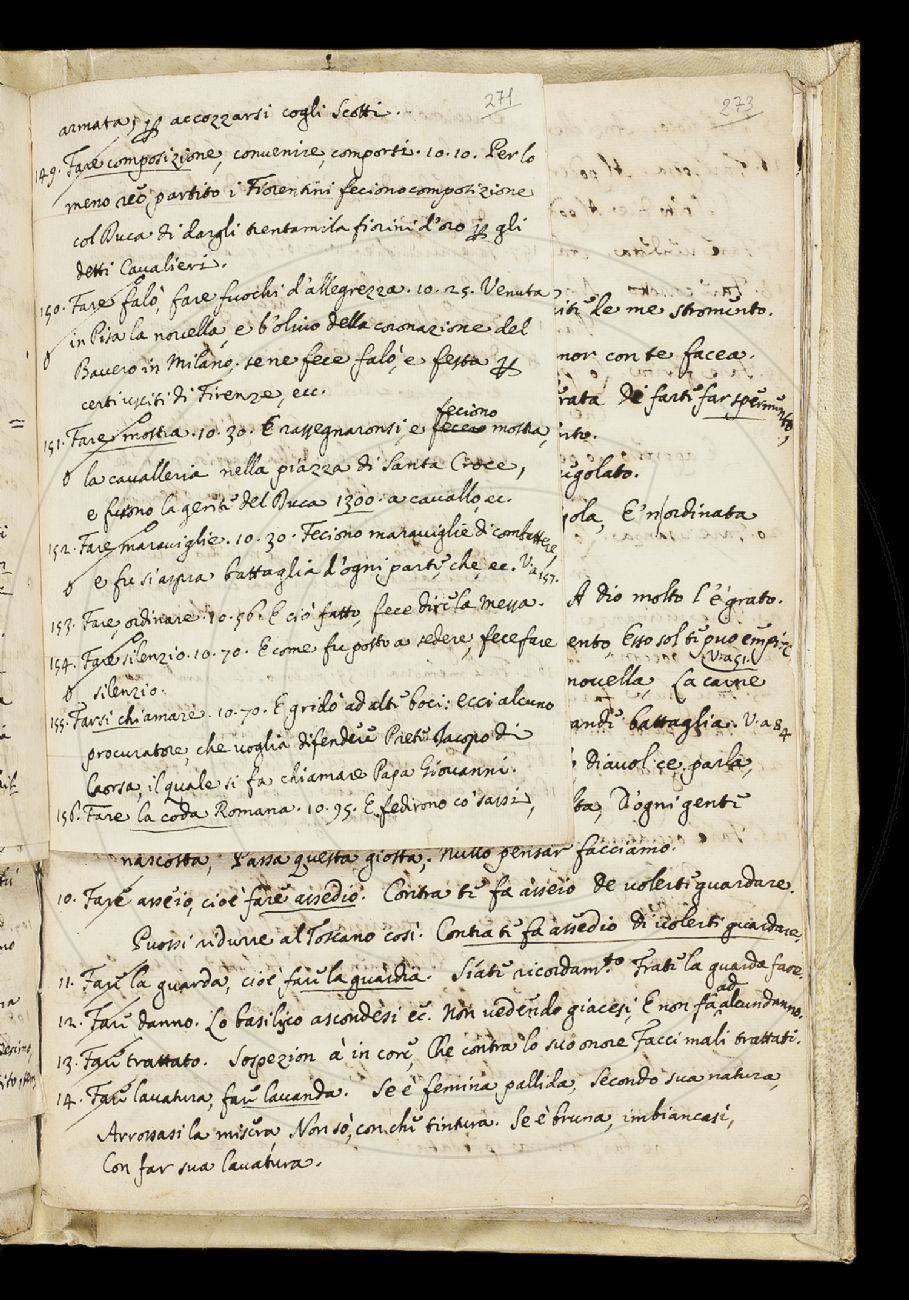 271
armata; per accozzarsi cogli Scotti.
149. Fare composizione, convenire, comporsi. 10. 10. Per lo
meno reo partito i Fiorentini feciono composizione
col Duca di dargli trentamila fiorini d'oro per gli
detti Cavalieri.
150. Fare falò, fare fuochi d'allegrezza. 10. 25. Venuta
in Pisa la novella, e l'olivo della coronazione del
Bavero in Milano, se ne fece falò, e festa per
certi usciti di Firenze, ecc.
151. Fare mostra. 10. 30. E rassegnaronsi, e feciono mostra,
la cavalleria nella piazza di Santa Croce,
e furono la gente del Duca 1300. a cavallo, ec.
152. Fare maraviglie. 10. 30. Feciono maraviglie di combattere,
e fu si aspra battaglia d'ogni parte, che, ec. V. a 157.
153. Fare, ordinare. 10. 56. E ciò fatto, fece dire la Messa.
154. Fare silenzio. 10. 70. E come fu posto a sedere, fece fare
silenzio.
155. Farsi chiamare. 10. 70. E gridò ad alte boci: ecci alcuno
procuratore, che voglia difendere Prete Jacopo di
Caorsa, il quale si fa chiamare Papa Giovanni.
156. Fare la coda Romana. 10. 95. E fedirono co' sassi,
273
le me stromento.
con te facea.
De farti far spermento,
E' n ordinata
A dio molto l'è grato.
Esso sol ti può empire
V. a 51.
novella, La carne
battaglia. V. a 84
Diavol, ce parla,
D'ogni gente
nascosta, Passa questa giosta, Nullo pensar facciamo.
10. Fare asseio, cioè fare assedio. Contra te fa asseio De volerti guardare.
Puossi ridurre al Toscano così. Contra te fa assedio di volerti guardare.
11. Fare la guarda, cioè fare la guardia. Siate ricordam.to Frate la guarda fare.
12. Fare danno. Lo basilico ascondesi ec. Non vedendo giacesi, E non fa ad alcun danno.
13. Fare trattato. Sospezion à in core, Che contra lo suo onore Facci mali trattati.
14. Fare lavatura, fare lavanda. Se è femina pallida, Secondo sua natura,
Arrossasi la misera, Non sò, con che tintura. Se è bruna, imbiancasi,
Con far sua lavatura.